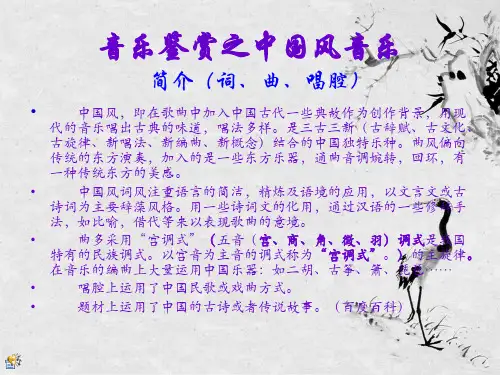 音乐鉴赏之中国风音乐
简介（词、曲、唱腔）
• 中国风，即在歌曲中加入中国古代一些典故作为创作背景，用现
代的音乐唱出古典的味道，唱法多样。是三古三新（古辞赋、古文化、
古旋律、新唱法、新编曲、新概念）结合的中国独特乐种。曲风偏向
传统的东方演奏，加入的是一些东方乐器，通曲音调婉转，回环，有
一种传统东方的美感。
• 中国风词风注重语言的简洁，精炼及语境的应用，以文言文或古
诗词为主要辞藻风格。用一些诗词文的化用，通过汉语的一些修辞手
法，如比喻，借代等来以表现歌曲的意境。
• 曲多采用“宫调式”（五音（宫、商、角、徵、羽）调式是我国
特有的民族调式。以宫音为主音的调式称为“宫调式”。）的主旋律。
在音乐的编曲上大量运用中国乐器：如二胡、古筝、箫、琵琶……
• 唱腔上运用了中国民歌或戏曲方式。
• 题材上运用了中国的古诗或者传说故事。（百度百科）